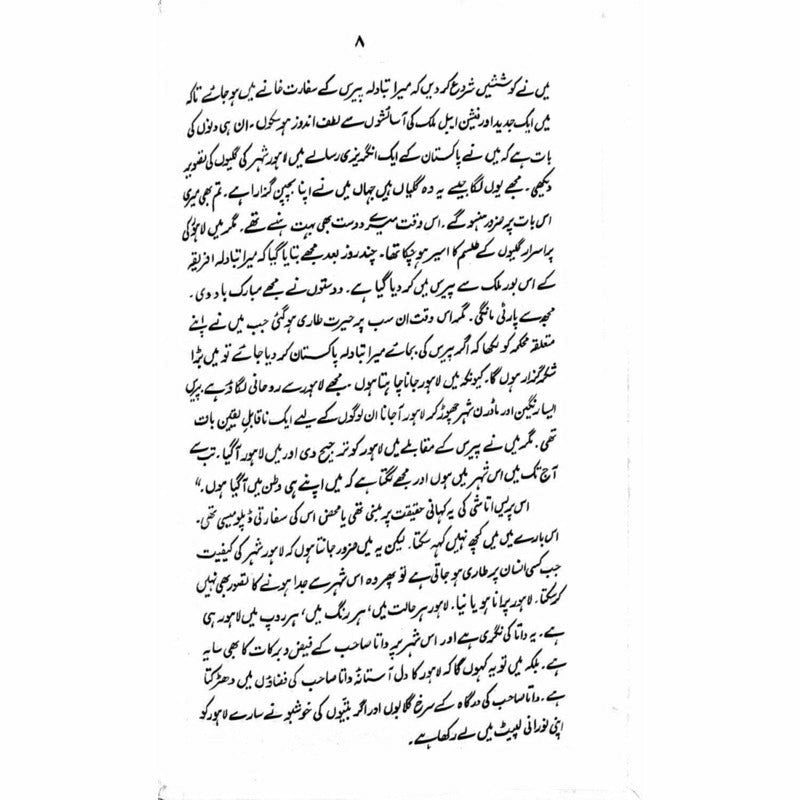 ۸
میں نے کوششیں شروع کر دیں کہ میرا تبادلہ پیرس کے سفارت خانے میں ہو جائے تاکہ
میں ایک جدید اور فیشن ایبل ملک کی آسائشوں سے لطف اندوز ہو سکوں۔ ان ہی دنوں کی
بات ہے کہ میں نے پاکستان کے ایک انگریزی رسالے میں لاہور شہر کی گلیوں کی تصویر
دیکھی۔ مجھے یوں لگا جیسے یہ وہ گلیاں ہیں جہاں میں نے اپنا بچپن گذارا ہے۔ تم بھی میری
اس بات پر ضرور ہنسو گے۔ اس وقت میرے دوست بھی بہت ہنسے تھے۔ مگر میں لاہور کی
پراسرار گلیوں کے طلسم کا اسیر ہو چکا تھا۔ چند روز بعد مجھے بتایا گیا کہ میرا تبادلہ افریقہ
کے اس بور ملک سے پیرس میں کر دیا گیا ہے۔ دوستوں نے مجھے مبارک باد دی۔
مجھ سے پارٹی مانگی۔ مگر اس وقت ان سب پر حیرت طاری ہو گئی جب میں نے اپنے
متعلقہ محکمہ کو لکھا کہ اگر پیرس کی بجائے میرا تبادلہ پاکستان کر دیا جائے تو میں بڑا
شکر گزار ہوں گا۔ کیونکہ میں لاہور جانا چاہتا ہوں۔ مجھے لاہور سے روحانی لگاؤ ہے پیرس
ایسا رنگین اور ماڈرن شہر چھوڑ کر لاہور آجانا ان لوگوں کے لیے ایک ناقابل یقین بات
تھی۔ مگر میں نے پیرس کے مقابلے میں لاہور کو ترجیح دی اور میں لاہور آگیا۔ تب سے
آج تک میں اس شہر میں ہوں اور مجھے لگتا ہے کہ میں اپنے ہی وطن میں آگیا ہوں۔“
اس پریس اتاشی کی یہ کہانی حقیقت پر مبنی تھی یا محض اس کی سفارتی ڈپلومیسی تھی۔
اس بارے میں میں کچھ نہیں کہہ سکتا۔ لیکن یہ میں ضرور جانتا ہوں کہ لاہور شہر کی کیفیت
جب کسی انسان پر طاری ہو جاتی ہے تو پھر وہ اس شہر سے جدا ہونے کا تصور بھی نہیں
کر سکتا۔ لاہور پرانا ہو یا نیا۔ لاہور ہر حالت میں، ہر رنگ میں، ہر روپ میں لاہور ہی
ہے۔ یہ داتا کی نگری ہے اور اس شہر پر داتا صاحب کے فیض و برکات کا بھی سایہ
ہے۔ بلکہ میں تو یہ کہوں گا کہ لاہور کا دل آستانۂ داتا صاحب کی فضاؤں میں دھڑکتا
ہے۔ داتا صاحب کی درگاہ کے سرخ گلابوں اور اگر بتیوں کی خوشبو نے سارے لاہور کو
اپنی نورانی لپیٹ میں لے رکھا ہے۔